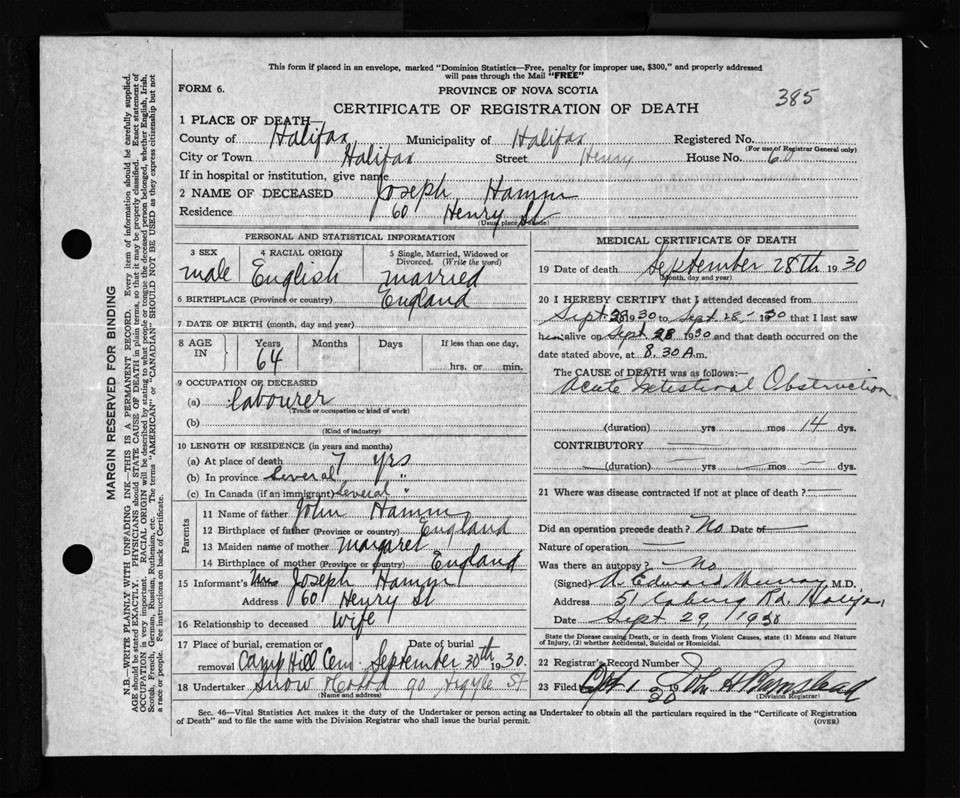 This form if placed in an envelope, marked "Dominion Statistics—Free, penalty for improper use, $300," and properly addressed
will pass through the Mail "FREE"
FORM 6.
PROVINCE OF NOVA SCOTIA
385
CERTIFICATE OF REGISTRATION OF DEATH
1 PLACE OF DEATH—
County of Halifax Municipality of Halifax Registered No.
(For use of Registrar General only)
City or Town Halifax Street Henry House No. 60
If in hospital or institution, give name
2 NAME OF DECEASED Joseph Hamm
Residence 60 Henry St
(Usual place of abode)
PERSONAL AND STATISTICAL INFORMATION
3 SEX 4 RACIAL ORIGIN 5 Single, Married, Widowed or
Divorced. (Write the word)
male English married
6 BIRTHPLACE (Province or country) England
7 DATE OF BIRTH (month, day and year)
8 AGE IN Years Months Days If less than one day,
64 hrs. or min.
9 OCCUPATION OF DECEASED
(a) Labourer
(Trade or occupation or kind of work)
(b)
(Kind of industry)
10 LENGTH OF RESIDENCE (in years and months)
(a) At place of death 7 yrs
(b) In province Several "
(c) In Canada (if an immigrant) Several "
Parents
11 Name of father John Hamm
12 Birthplace of father (Province or Country) England
13 Maiden name of mother Margaret
14 Birthplace of mother (Province or Country) England
15 Informant's Mrs Joseph Hamm
Address 60 Henry St
16 Relationship to deceased Wife
17 Place of burial, cremation or Date of burial
removal Camp Hill Cem. September 30th 1930.
18 Undertaker Snow 90 Argyle St
(Name and address)
MEDICAL CERTIFICATE OF DEATH
19 Date of death September 28th 1930
(Month, day and year)
20 I HEREBY CERTIFY that I attended deceased from
Sept. 28 1930 to Sept. 28 - 1930 that I last saw
him alive on Sept. 28 1930 and that death occurred on the
date stated above, at 8.30 A.m.
The CAUSE OF DEATH was as follows:—
Acute Intestinal Obstruction
(duration) yrs mos 14 dys.
CONTRIBUTORY —
(duration) — yrs — mos — dys.
21 Where was disease contracted if not at place of death?
Did an operation precede death? No Date of —
Nature of operation —
Was there an autopsy? No
(Signed) A. Edward Murray M.D.
Address 51 Coburg Rd. Halifax
Date Sept 29, 1930
State the Disease causing Death, or in death from Violent Causes, state (1) Means and Nature
of Injury, (2) whether Accidental, Suicidal or Homicidal.
22 Registrar's Record Number
23 Filed Oct 1 1930 John H Barnstead
(Division Registrar)
Sec. 46—Vital Statistics Act makes it the duty of the Undertaker or person acting as Undertaker to obtain all the particulars required in the "Certificate of Registration
of Death" and to file the same with the Division Registrar who shall issue the burial permit.
(OVER)
MARGIN RESERVED FOR BINDING
N.B.—WRITE PLAINLY WITH UNFADING INK—THIS IS A PERMANENT RECORD. Every item of information should be carefully supplied.
AGE should be stated EXACTLY. PHYSICIANS should STATE CAUSE OF DEATH in plain terms, so that it may be properly classified. Exact statement of
OCCUPATION is very important. RACIAL ORIGIN will be described by stating to what people or tongue the deceased person belonged, whether English, Irish,
Scotch, French, German, Russian, Ruthenian, etc. The terms "AMERICAN" or "CANADIAN" SHOULD NOT BE USED as they express citizenship but not
a race or people. For instructions on back of Certificate.